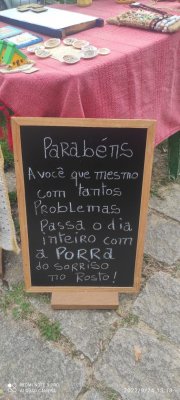 Parabéns
A você que mesmo
com tantos
Problemas
Passa o dia
inteiro com
a PORRA
do sorriso
no Rosto!
REDMI NOTE 8 PRO
AI QUAD CAMERA